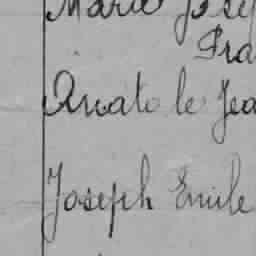 Marie Jose
Fra
Anato le Jea
Joseph Emile